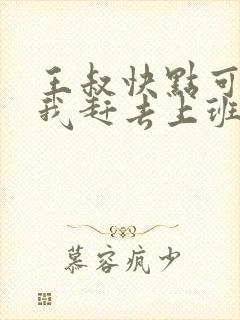 王叔快點可
我赶去上班
慕容疯少